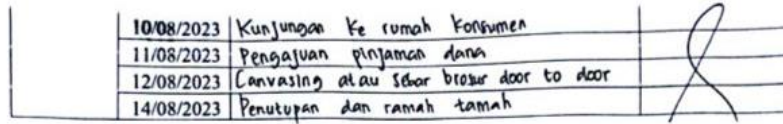 10/08/2023 Kunjungan ke rumah konsumen
11/08/2023 Pengajuan pinjaman dana
12/08/2023 Canvasing atau sebar brosur door to door
14/08/2023 Penutupan dan ramah tamah